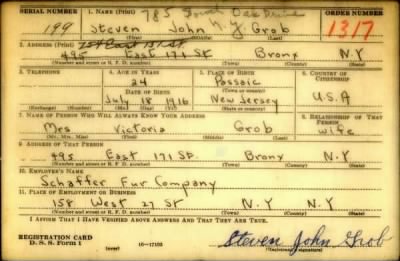 SERIAL NUMBER 1. NAME (Print) 785 ORDER NUMBER
199 Steven John Grob 1317
(First) (Middle) (Last)
2. ADDRESS (Print)
495 East 171 St Bronx N.Y
(Number and street or R. F. D. number) (Town) (County) (State)
3. TELEPHONE 4. AGE IN YEARS 5. PLACE OF BIRTH 6. COUNTRY OF CITIZENSHIP
24 Passaic
DATE OF BIRTH (Town or county)
July 18 1916 New Jersey U.S.A
(Exchange) (Number) (Mo.) (Day) (Yr.) (State or country)
7. NAME OF PERSON WHO WILL ALWAYS KNOW YOUR ADDRESS 8. RELATIONSHIP OF THAT PERSON
Mrs Victoria Grob Wife
(Mr., Mrs., Miss) (First) (Middle) (Last)
9. ADDRESS OF THAT PERSON
495 East 171 St. Bronx N.Y
(Number and street or R. F. D. number) (Town) (County) (State)
10. EMPLOYER'S NAME
Schaffer Fur Company
11. PLACE OF EMPLOYMENT OR BUSINESS
158 West 27 St N.Y N.Y
(Number and street or R. F. D. number) (Town) (County) (State)
I AFFIRM THAT I HAVE VERIFIED ABOVE ANSWERS AND THAT THEY ARE TRUE.
REGISTRATION CARD
D. S. S. Form 1 (over) 16-17105 Steven John Grob
(Registrant's signature)